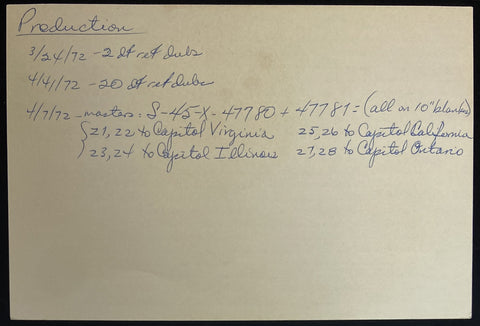 Production
3/24/72 - 2 df ref dubs
4/4/72 - 20 df ref dubs
4/7/72 - masters: S-45-X-47780 + 47781 = (all on 10" blanks)
{21, 22 to Capitol Virginia 25, 26 to Capitol California
23, 24 to Capitol Illinois 27, 28 to Capitol Ontario